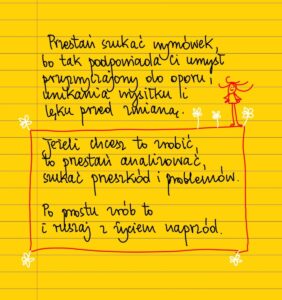 Przestań szukać wymówek,
bo tak podpowiada Ci umysł
przyzwyczajony do oporu i
unikania wysiłku i
lęku przed zmianą.
Jeżeli chcesz to zrobić,
to przestań analizować,
szukać przeszkód i problemów.
Po prostu zrób to
i ruszaj z życiem naprzód.